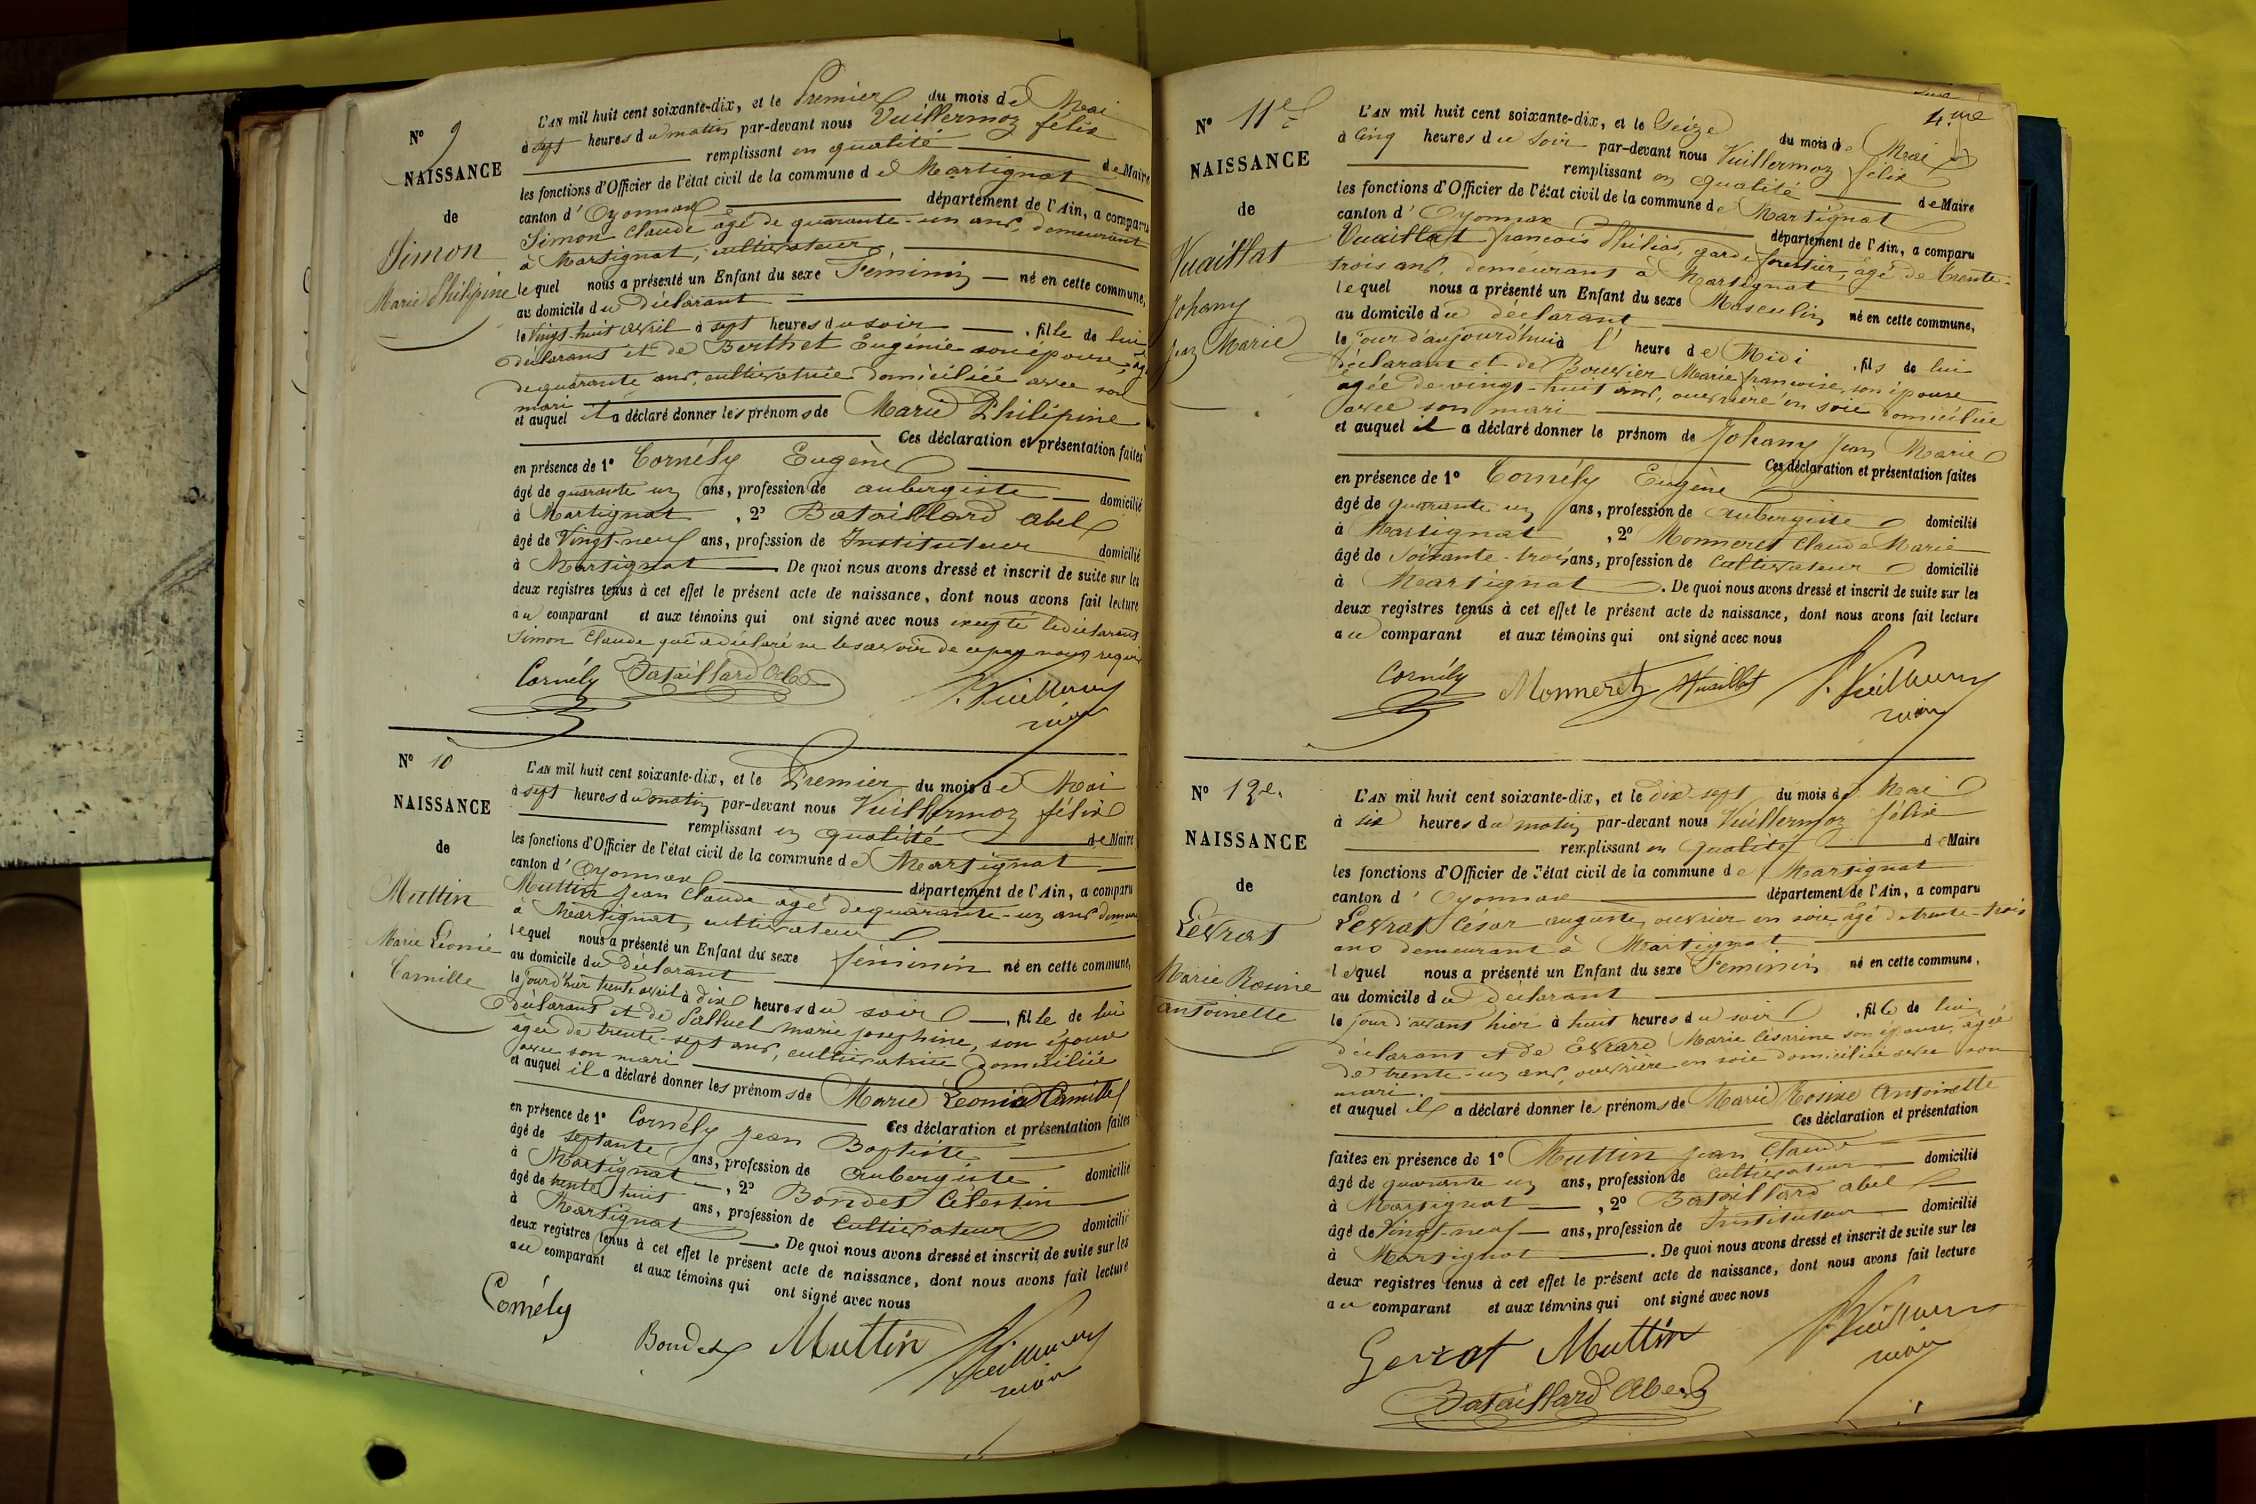 N° 9
NAISSANCE
de
Simon
Marie Philipine
L'AN mil huit cent soixante-dix, et le Premier du mois de Mai
à sept heures du matin par-devant nous Vuillermoz félix
remplissant en qualité de Maire
les fonctions d'Officier de l'état civil de la commune de Martignat
canton d'Oyonnax département de l'Ain, a comparu
Simon Claude agé de quarante-un ans, demeurant
à Martignat, cultivateur
lequel nous a présenté un Enfant du sexe Féminin né en cette commune,
au domicile du déclarant
le Vingt-huit avril à sept heures du soir, fille de lui
déclarant et de Berthet Eugénie son épouse agée
de quarante ans, cultivatrice domiciliée avec son
mari
et auquel il a déclaré donner les prénoms de Marie Philipine
Ces déclaration et présentation faites
en présence de 1° Cornély Eugène
âgé de quarante un ans, profession de aubergiste domicilié
à Martignat, 2° Bataillard abel
âgé de Vingt-neuf ans, profession de Instituteur domicilié
à Martignat. De quoi nous avons dressé et inscrit de suite sur les
deux registres tenus à cet effet le présent acte de naissance, dont nous avons fait lecture
au comparant et aux témoins qui ont signé avec nous excepté le déclarant
Simon Claude qui a déclaré ne le savoir de ce par nous requis
Cornély Bataillard Abel f. Vuillermoz
maire
N° 10
NAISSANCE
de
Muttin
Marie Léonie
Camille
L'AN mil huit cent soixante-dix, et le Premier du mois de Mai
à sept heures du matin par-devant nous Vuillermoz félix
remplissant en qualité de Maire
les fonctions d'Officier de l'état civil de la commune de Martignat
canton d'Oyonnax département de l'Ain, a comparu
Muttin Jean Claude âgé de quarante-un ans demeurant
à Martignat, cultivateur
lequel nous a présenté un Enfant du sexe féminin né en cette commune,
au domicile du déclarant
le jourd'hier trente avril à dix heures du soir, fille de lui
déclarant et de Palluel marie josephine, son épouse
âgée de trente-sept ans, cultivatrice domiciliée
avec son mari
et auquel il a déclaré donner les prénoms de Marie Léonie Camille
Ces déclaration et présentation faites
en présence de 1° Cornély Jean Baptiste
âgé de septante ans, profession de Aubergiste domicilié
à Martignat, 2° Bondet Célestin
âgé de trente huit ans, profession de Cultivateur domicilié
à Martignat. De quoi nous avons dressé et inscrit de suite sur les
deux registres tenus à cet effet le présent acte de naissance, dont nous avons fait lecture
au comparant et aux témoins qui ont signé avec nous
Cornély Bondet Muttin f. Vuillermoz
maire
4.me
N° 11e
NAISSANCE
de
Vuaillat
Johany
Jean Marie
L'AN mil huit cent soixante-dix, et le Seize du mois de Mai
à Cinq heures du soir par-devant nous Vuillermoz félix
remplissant en qualité de Maire
les fonctions d'Officier de l'état civil de la commune de Martignat
canton d'Oyonnax département de l'Ain, a comparu
Vuaillat françois Philias, garde forestier, âgé de trente-
trois ans, demeurant à Martignat
lequel nous a présenté un Enfant du sexe Masculin né en cette commune,
au domicile du déclarant
le jour d'aujourd'hui à l'heure de Midi, fils de lui
déclarant et de Bouvier Marie françoise, son épouse
âgée de vingt-huit ans, ouvrière en soie domiciliée
avec son mari
et auquel il a déclaré donner le prénom de Johany Jean Marie
Ces déclaration et présentation faites
en présence de 1° Cornély Eugène
âgé de quarante-un ans, profession de Aubergiste domicilié
à Martignat, 2° Monneret Claude Marie
âgé de Soixante-trois ans, profession de Cultivateur domicilié
à Martignat. De quoi nous avons dressé et inscrit de suite sur les
deux registres tenus à cet effet le présent acte de naissance, dont nous avons fait lecture
au comparant et aux témoins qui ont signé avec nous
Cornély Monneret Vuaillat f. Vuillermoz
maire
N° 12e.
NAISSANCE
de
Levrat
Marie Rosine
Antoinette
L'AN mil huit cent soixante-dix, et le dix-sept du mois de Mai
à six heures du matin par-devant nous Vuillermoz félix
remplissant en qualité de Maire
les fonctions d'Officier de l'état civil de la commune de Martignat
canton d'Oyonnax département de l'Ain, a comparu
Levrat César auguste, ouvrier en soie, âgé de trente-trois
ans demeurant à Martignat
lequel nous a présenté un Enfant du sexe Féminin né en cette commune,
au domicile du déclarant
le jour d'avant hier à huit heures du soir, fille de lui
déclarant et de Evrard Marie Césarine son épouse, âgée
de trente-un ans, ouvrière en soie domiciliée avec son
mari.
et auquel il a déclaré donner les prénoms de Marie Rosine Antoinette
Ces déclaration et présentation
faites en présence de 1° Muttin Jean Claude
âgé de quarante un ans, profession de Cultivateur domicilié
à Martignat, 2° Bataillard abel
âgé de Vingt-neuf ans, profession de Instituteur domicilié
à Martignat. De quoi nous avons dressé et inscrit de suite sur les
deux registres tenus à cet effet le présent acte de naissance, dont nous avons fait lecture
au comparant et aux témoins qui ont signé avec nous
Levrat Muttin f. Vuillermoz
maire
Bataillard Abel